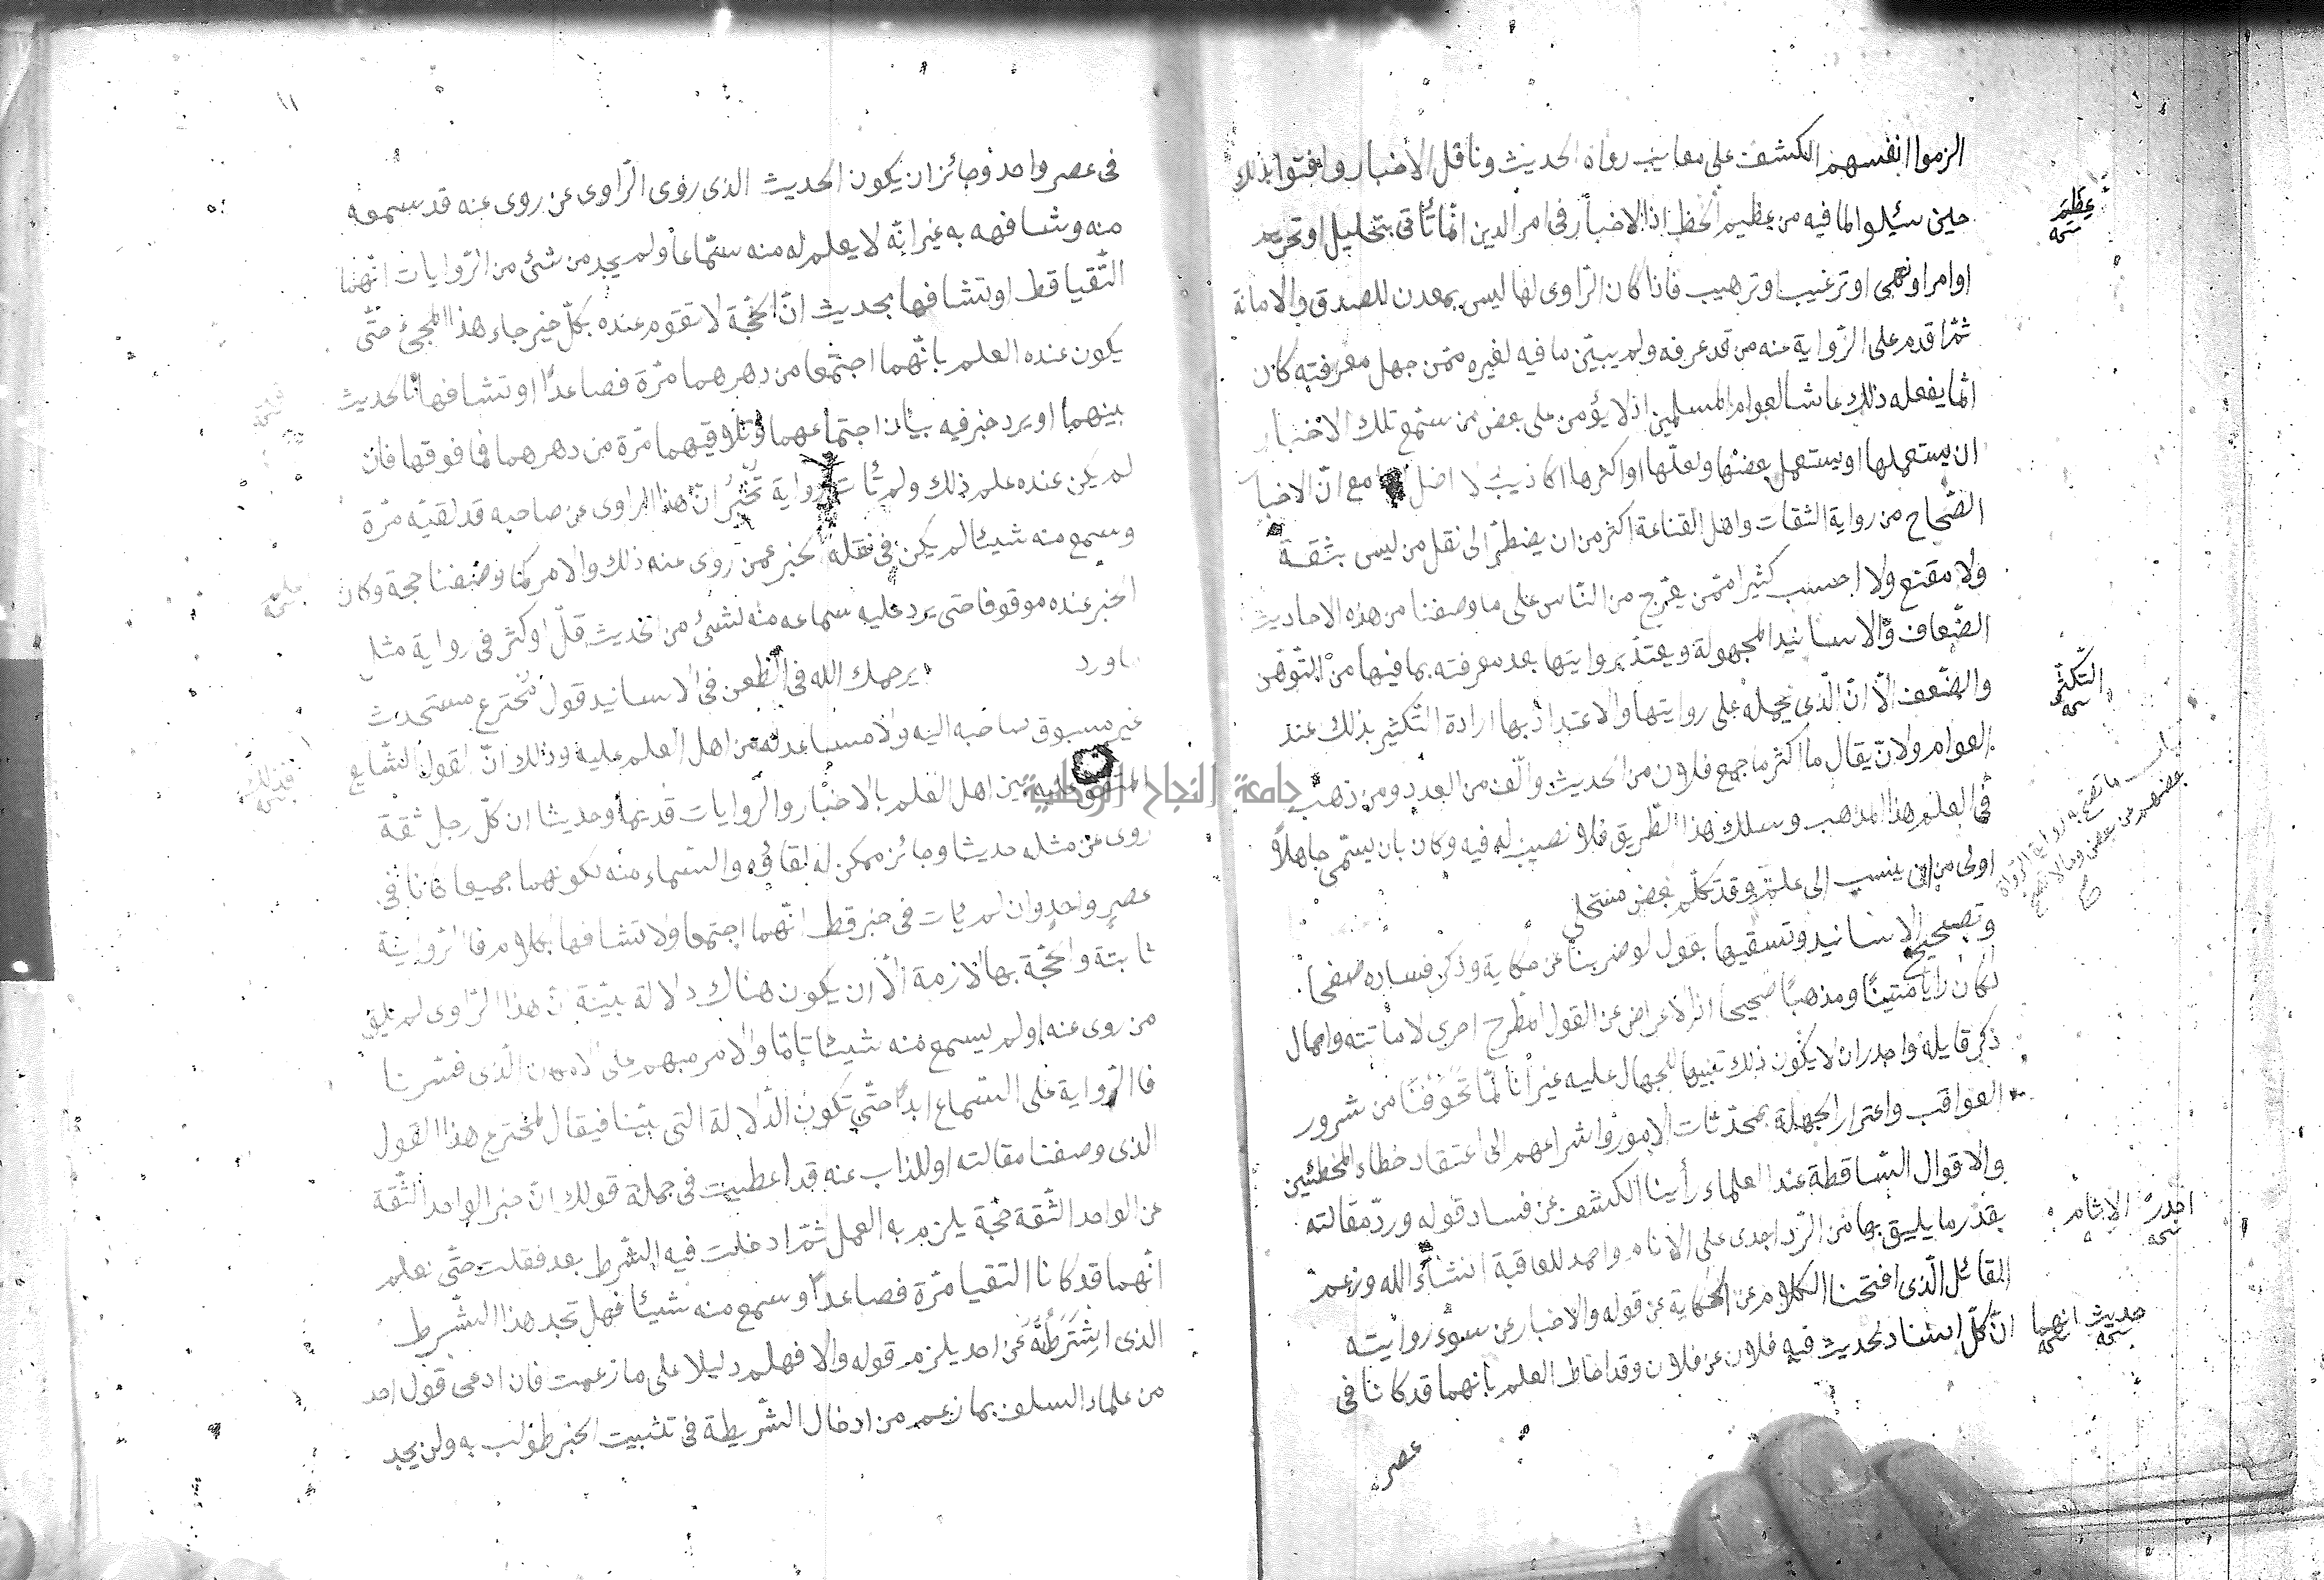 الزموا انفسهم الكشف على معايب رواة الحديث وناقل الاخبار وافتوا بذلك
حين سئلوا لما فيه من عظيم الحظ اذ الاخبار فى امر الدين انما تأتى بتحليل او تحريم
عظيم
نسخه
او امر او نهى او ترغيب او ترهيب فاذا كان الراوى لها ليس بمعدن للصدق والامانة
ثم اقدم على الرواية عنه من قد عرفه ولم يبين ما فيه لغيره ممن جهل معرفته كان
اثما بفعله ذلك غاشا لعوام المسلمين اذ لا يؤمن على بعض من سمع تلك الاخبار
ان يستعملها او يستعمل بعضها ولعلها او اكثرها اكاذيب لا اصل لها مع ان الاخبار
الصحاح من رواية الثقات واهل القناعة اكثر من ان يضطر الى نقل من ليس بثقة
ولا مقنع ولا احسب كثيرا ممن يعرج من الناس على ما وصفنا من هذه الاحاديث
الضعاف والاسانيد المجهولة ويعتد بروايتها بعد معرفته بما فيها من التوهن
والضعف الا ان الذى يحمله على روايتها والاعتداد بها ارادة التكثير بذلك عند
التكثر
نسخه
العوام ولان يقال ما اكثر ما جمع فلان من الحديث والف من العدد ومن ذهب
فى العلم هذا المذهب وسلك هذا الطريق فلا نصيب له فيه وكان بان يسمى جاهلا
اولى من ان ينسب الى علم وقد تكلم بعض منتحلى
باب ما تصح به رواية الرواة
بعضهم من بعض وما لا تصح
وتصحيح الاسانيد وتسقيمها بقول لو ضربنا عن حكاية وذكر فساده صفحا
لكان رايا متينا ومذهبا صحيحا اذ الاعراض عن القول المطرح احرى لاماتته واخمال
ذكر قايله واجدر ان لا يكون ذلك تنبيها للجهال عليه غير انا لما تخوفنا من شرور
العواقب واغترار الجهلة بمحدثات الامور واسراعهم الى اعتقاد خطاء المخطئين
والاقوال الساقطة عند العلماء رأينا الكشف عن فساد قوله ورد مقالته
بقدر ما يليق بها من الرد اجدى على الانام واحمد للعاقبة انشاء الله وزعم
اجدر
نسخه
الاثام
القائل الذى افتتحنا الكلام عن الحكاية عن قوله والاخبار عن سوء روايته
ان كل اسناد لحديث فيه فلان عن فلان وقد احاط العلم بانهما قد كانا فى
حديث
نسخه
انهما
نسخه
عصر
١١
فى عصر واحد وجائز ان يكون الحديث الذى روى الراوى عن روى عنه قد سمعه
منه وشافهه به غير انه لا يعلم له منه سماعا ولم يجد من شئ من الروايات انهما
التقيا قط او تشافها بحديث ان الحجة لا تقوم عنده بكل خبر جاء هذا المجئ حتى
يكون عنده العلم بانهما اجتمعا من دهرهما مرة فصاعدا او تشافها بالحديث
بينهما او يرد خبر فيه بيان اجتماعهما وتلاقيهما مرة من دهرهما فما فوقها فان
لم يكن عنده علم ذلك ولم تأت رواية تخبر ان هذا الراوى عن صاحبه قد لقيه مرة
وسمع منه شيئا لم يكن فى نقله الخبر عمن روى عنه ذلك والامر كما وصفنا حجة وكان
الخبر عنده موقوفا حتى يرد عليه سماعه منه لشئ من الحديث قل او كثر فى رواية مثل
ما ورد يرحمك الله فى الطعن فى الاسانيد قول مخترع مستحدث
غير مسبوق صاحبه اليه ولا مساعد له من اهل العلم عليه وذلك ان القول الشايع
فذلك
نسخه
المتفق عليه بين اهل العلم بالاخبار والروايات قديما وحديثا ان كل رجل ثقة
جامعة النجاح الوطنية
روى عن مثله حديثا وجائز ممكن له لقاؤه والسماع منه لكونهما جميعا كانا فى
عصر واحد وان لم يأت فى خبر قط انهما اجتمعا ولا تشافها بكلام فالرواية
ثابتة والحجة بها لازمة الا ان يكون هناك دلالة بينة ان هذا الراوى لم يلق
من روى عنه او لم يسمع منه شيئا تاما والامر مبهم على الذى فسرنا
فالرواية على السماع ابدا حتى تكون الدلالة التى بينا فيقال لمخترع هذا القول
الذى وصفنا مقالته او للذاب عنه قد اعطيت فى جملة قولك ان خبر الواحد الثقة
عن الواحد الثقة حجة يلزم به العمل ثم ادخلت فيه الشرط بعد فقلت حتى نعلم
انهما قد كانا التقيا مرة فصاعدا وسمع منه شيئا فهل تجد هذا الشرط
الذى اشترطته عن احد يلزم قوله والا فهلم دليلا على ما زعمت فان ادعى قول احد
من علماء السلف بما زعم من ادخال الشريطة فى تثبيت الخبر طولب به ولن يجد